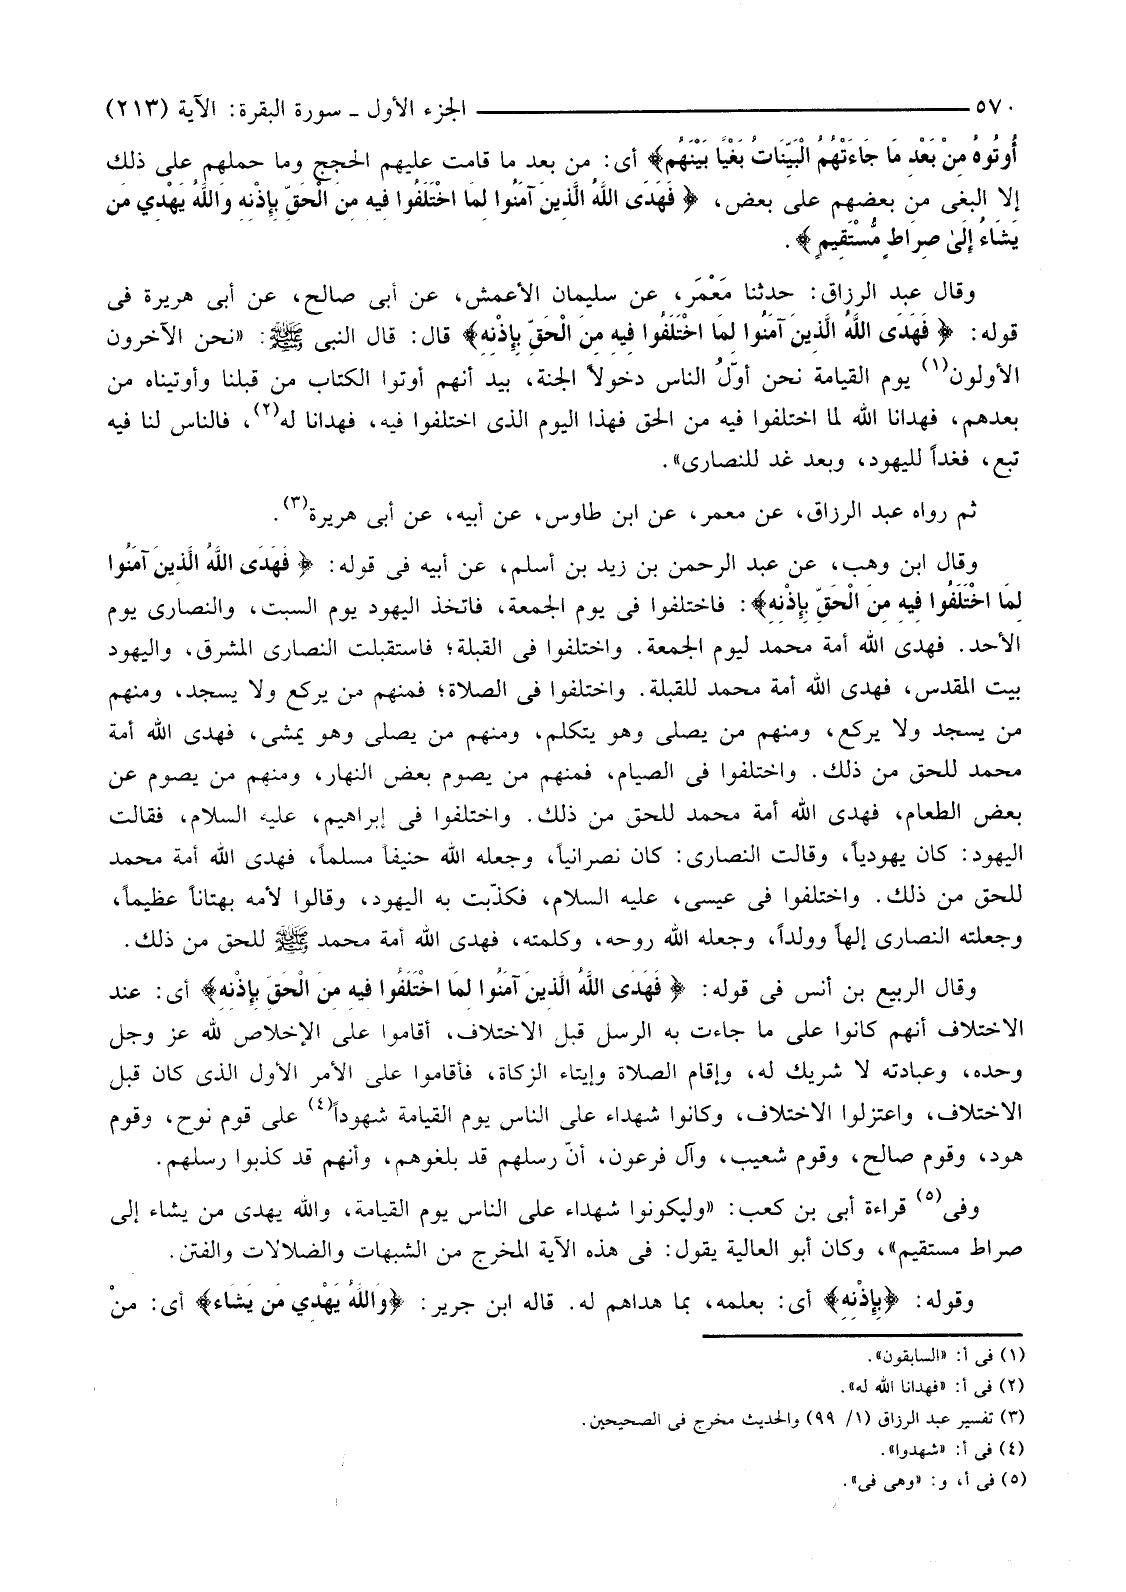 ٥٧٠ ــــــــــــــــ الجزء الأول ـ سورة البقرة: الآية (٢١٣)
أُوتُوهُ مِنْ بَعْدِ مَا جَاءَتْهُمُ الْبَيِّنَاتُ بَغْيًا بَيْنَهُمْ﴾ أى: من بعد ما قامت عليهم الحجج وما حملهم على ذلك
إلا البغى من بعضهم على بعض، ﴿ فَهَدَى اللَّهُ الَّذِينَ آمَنُوا لِمَا اخْتَلَفُوا فِيهِ مِنَ الْحَقِّ بِإِذْنِهِ وَاللَّهُ يَهْدِي مَن
يَشَاءُ إِلَىٰ صِرَاطٍ مُّسْتَقِيمٍ ﴾ .
وقال عبد الرزاق: حدثنا مَعْمَر، عن سليمان الأعمش، عن أبى صالح، عن أبى هريرة فى
قوله: ﴿ فَهَدَى اللَّهُ الَّذِينَ آمَنُوا لِمَا اخْتَلَفُوا فِيهِ مِنَ الْحَقِّ بِإِذْنِهِ﴾ قال: قال النبى ﷺ: «نحن الآخرون
الأولون(١) يوم القيامة نحن أوّلُ الناس دخولاً الجنة، بيد أنهم أوتوا الكتاب من قبلنا وأوتيناه من
بعدهم، فهدانا الله لما اختلفوا فيه من الحق فهذا اليوم الذى اختلفوا فيه، فهدانا له(٢)، فالناس لنا فيه
تبع، فغداً لليهود، وبعد غد للنصارى».
ثم رواه عبد الرزاق، عن معمر، عن ابن طاوس، عن أبيه، عن أبى هريرة(٣).
وقال ابن وهب، عن عبد الرحمن بن زيد بن أسلم، عن أبيه فى قوله: ﴿ فَهَدَى اللَّهُ الَّذِينَ آمَنُوا
لِمَا اخْتَلَفُوا فِيهِ مِنَ الْحَقِّ بِإِذْنِهِ﴾: فاختلفوا فى يوم الجمعة، فاتخذ اليهود يوم السبت، والنصارى يوم
الأحد. فهدى الله أمة محمد ليوم الجمعة. واختلفوا فى القبلة؛ فاستقبلت النصارى المشرق، واليهود
بيت المقدس، فهدى الله أمة محمد للقبلة. واختلفوا فى الصلاة؛ فمنهم من يركع ولا يسجد، ومنهم
من يسجد ولا يركع، ومنهم من يصلى وهو يتكلم، ومنهم من يصلى وهو يمشى، فهدى الله أمة
محمد للحق من ذلك. واختلفوا فى الصيام، فمنهم من يصوم بعض النهار، ومنهم من يصوم عن
بعض الطعام، فهدى الله أمة محمد للحق من ذلك. واختلفوا فى إبراهيم، عليه السلام، فقالت
اليهود: كان يهودياً، وقالت النصارى: كان نصرانياً، وجعله الله حنيفاً مسلماً، فهدى الله أمة محمد
للحق من ذلك. واختلفوا فى عيسى، عليه السلام، فكذّبت به اليهود، وقالوا لأمه بهتاناً عظيماً،
وجعلته النصارى إلهاً وولداً، وجعله الله روحه، وكلمته، فهدى الله أمة محمد ﷺ للحق من ذلك.
وقال الربيع بن أنس فى قوله: ﴿ فَهَدَى اللَّهُ الَّذِينَ آمَنُوا لِمَا اخْتَلَفُوا فِيهِ مِنَ الْحَقِّ بِإِذْنِهِ﴾ أى: عند
الاختلاف أنهم كانوا على ما جاءت به الرسل قبل الاختلاف، أقاموا على الإخلاص لله عز وجل
وحده، وعبادته لا شريك له، وإقام الصلاة وإيتاء الزكاة، فأقاموا على الأمر الأول الذى كان قبل
الاختلاف، واعتزلوا الاختلاف، وكانوا شهداء على الناس يوم القيامة شهوداً(٤) على قوم نوح، وقوم
هود، وقوم صالح، وقوم شعيب، وآل فرعون، أنّ رسلهم قد بلغوهم، وأنهم قد كذبوا رسلهم.
وفى(٥) قراءة أبى بن كعب: «وليكونوا شهداء على الناس يوم القيامة، والله يهدى من يشاء إلى
صراط مستقيم»، وكان أبو العالية يقول: فى هذه الآية المخرج من الشبهات والضلالات والفتن.
وقوله: ﴿بِإِذْنِهِ﴾ أى: بعلمه، بما هداهم له. قاله ابن جرير: ﴿وَاللَّهُ يَهْدِي مَن يَشَاء﴾ أى: منْ
(١) فى أ: «السابقون».
(٢) فى أ: «فهدانا الله له».
(٣) تفسير عبد الرزاق (١/ ٩٩) والحديث مخرج فى الصحيحين.
(٤) فى أ: «شهدوا».
(٥) فى أ، و: «وهى فى».